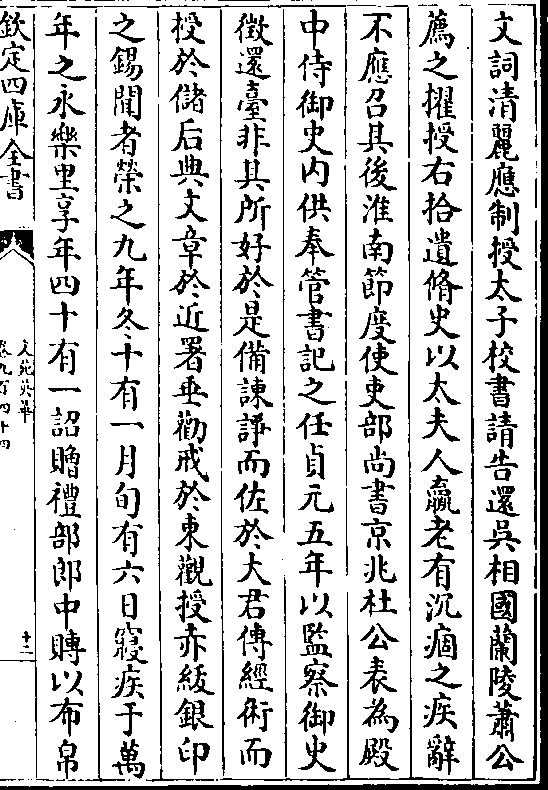 文詞清麗應制授太子校書請告還吳相國蘭陵蕭公
薦之擢授右拾遺脩史以太夫人羸老有沉痼之疾辭
不應召其後淮南節度使吏部尚書京兆杜公表為殿
中侍御史内供奉管書記之任貞元五年以監察御史
徴還臺非其所好於是備諫諍而佐於大君傳經術而
授於儲后典文章於近署垂勸戒於東觀授赤紱銀印
之錫聞者榮之九年冬十有一月旬有六日寢疾于萬
年之永樂里享年四十有一詔贈禮部郎中賻以布帛
欽定四庫全書
文苑英華
卷九百四十四
十二